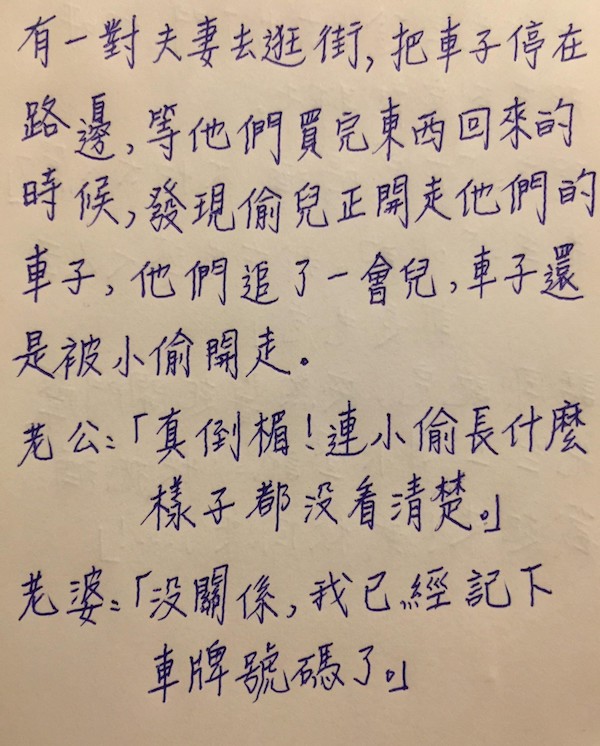 有一對夫妻去逛街,把車子停在
路邊,等他們買完東西回來的
時候,發現偷兒正開走他們的
車子,他們追了一會兒,車子還
是被小偷開走。
老公:「真倒楣!連小偷長什麼
樣子都没看清楚。」
老婆:「没關係,我已經記下
車牌號碼了。」